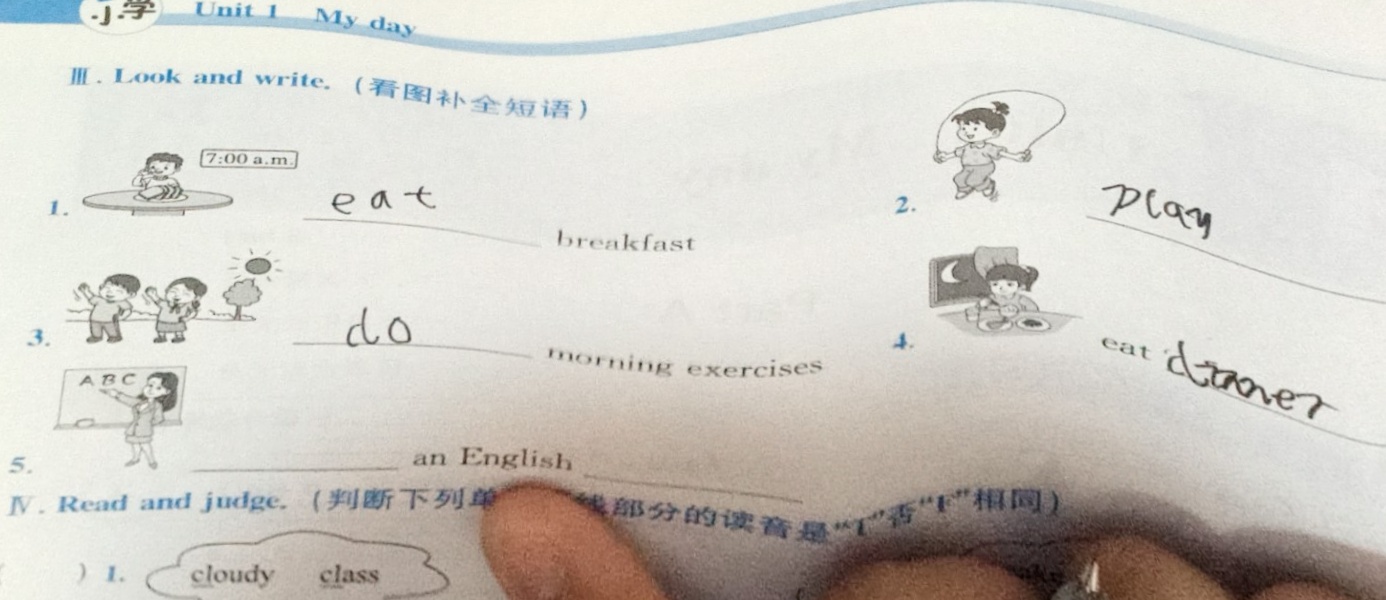 小学 Unit 1 My day
Ⅲ. Look and write. (看图补全短语)
7:00 a.m.
1. eat breakfast
2. play
3. do morning exercises
4. eat dinner
A B C
5. ______ an English ______
Ⅳ. Read and judge. (判断下列单 线部分的读音是“T”否“F”相同)
( ) 1. cloudy class